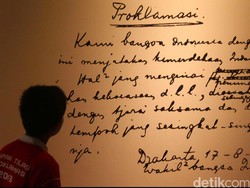 Proklamasi.
Kami bangsa Indonesia deng
ini menjatakan kemerdekaan Indo
Hal² jang mengenai
kekoeasaan d.l.l.,
dengan tjara saksama da
tempoh jang sesingkat-sing
nja.
Djakarta 17-8
wakil² bangsa
detikcom
detikcom